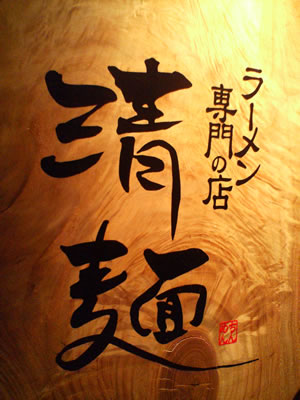 ラーメン
専門の店
清麺